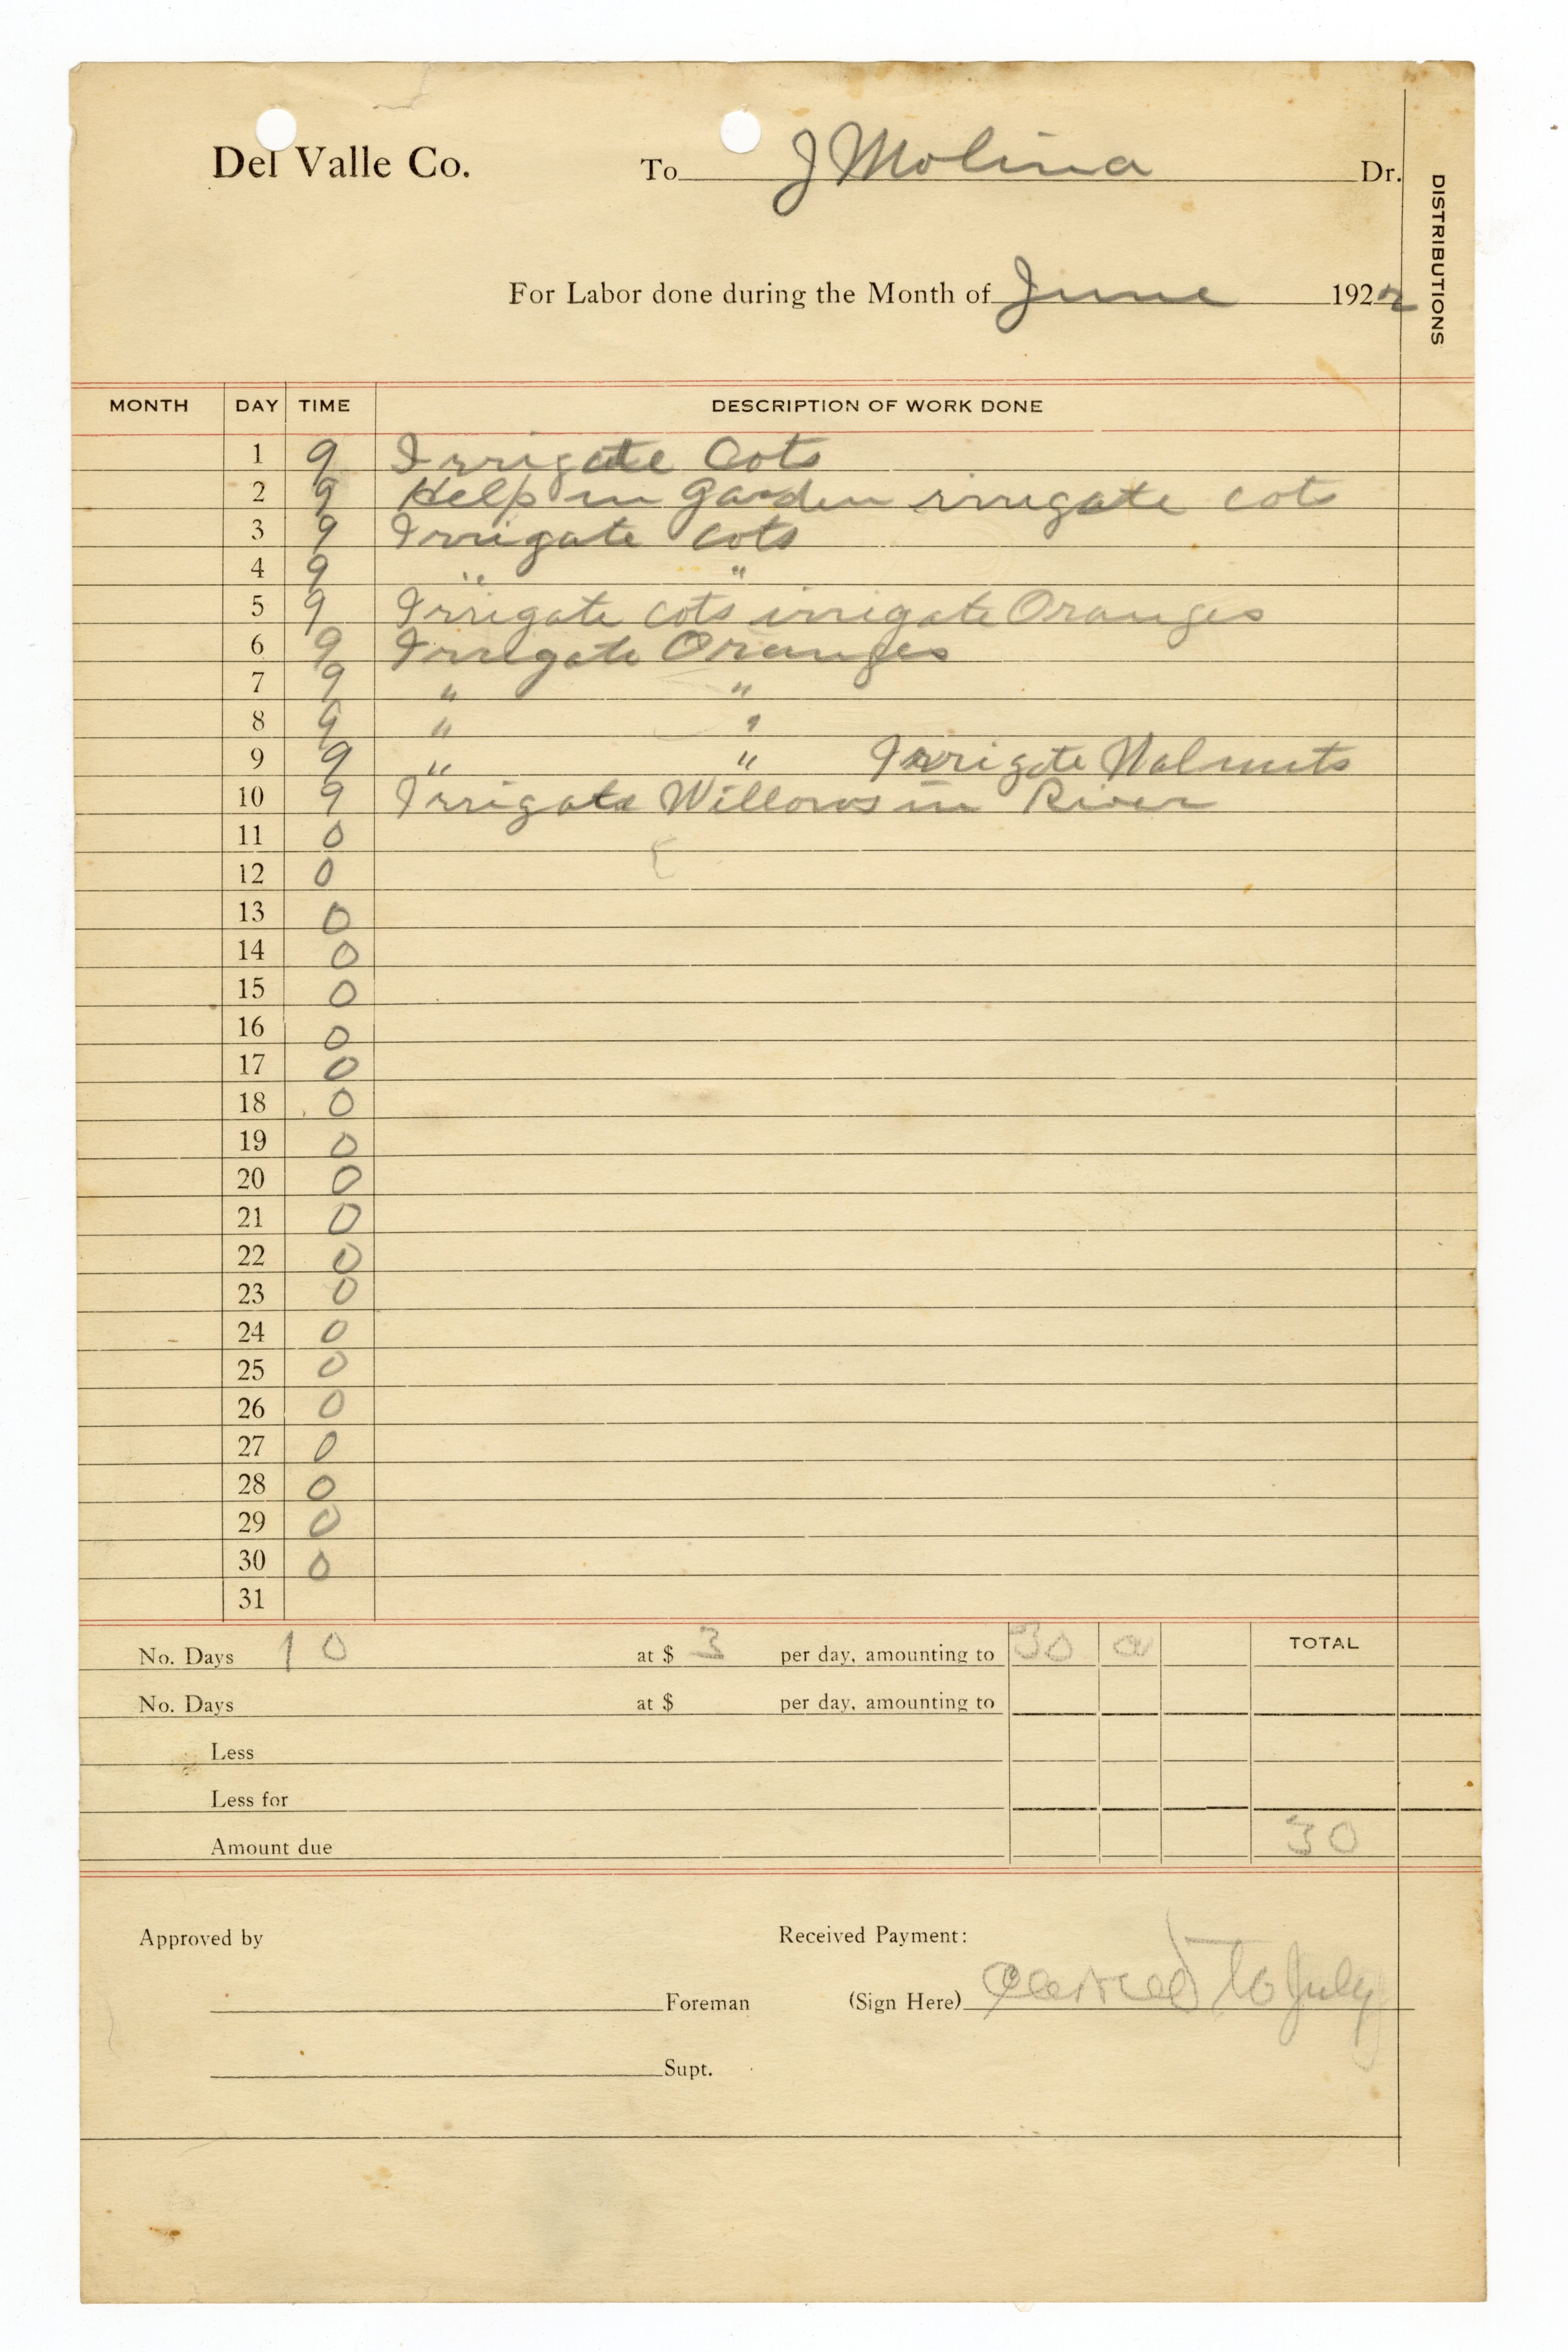 Del Valle Co. To J Molina Dr.
DISTRIBUTIONS
For Labor done during the Month of June 1922
MONTH DAY TIME DESCRIPTION OF WORK DONE
1 9 Irrigate Cots
2 9 Help in Garden irrigate cots
3 9 Irrigate cots
4 9 " "
5 9 Irrigate cots irrigate Oranges
6 9 Irrigate Oranges
7 9 " "
8 9 " "
9 9 " " Irrigate Walnuts
10 9 Irrigate Willows in River
11 0
12 0
13 0
14 0
15 0
16 0
17 0
18 0
19 0
20 0
21 0
22 0
23 0
24 0
25 0
26 0
27 0
28 0
29 0
30 0
31
No. Days 10 at $ 3 per day, amounting to 30 TOTAL
No. Days at $ per day, amounting to
Less
Less for
Amount due 30
Approved by Received Payment:
Foreman (Sign Here) to July
Supt.